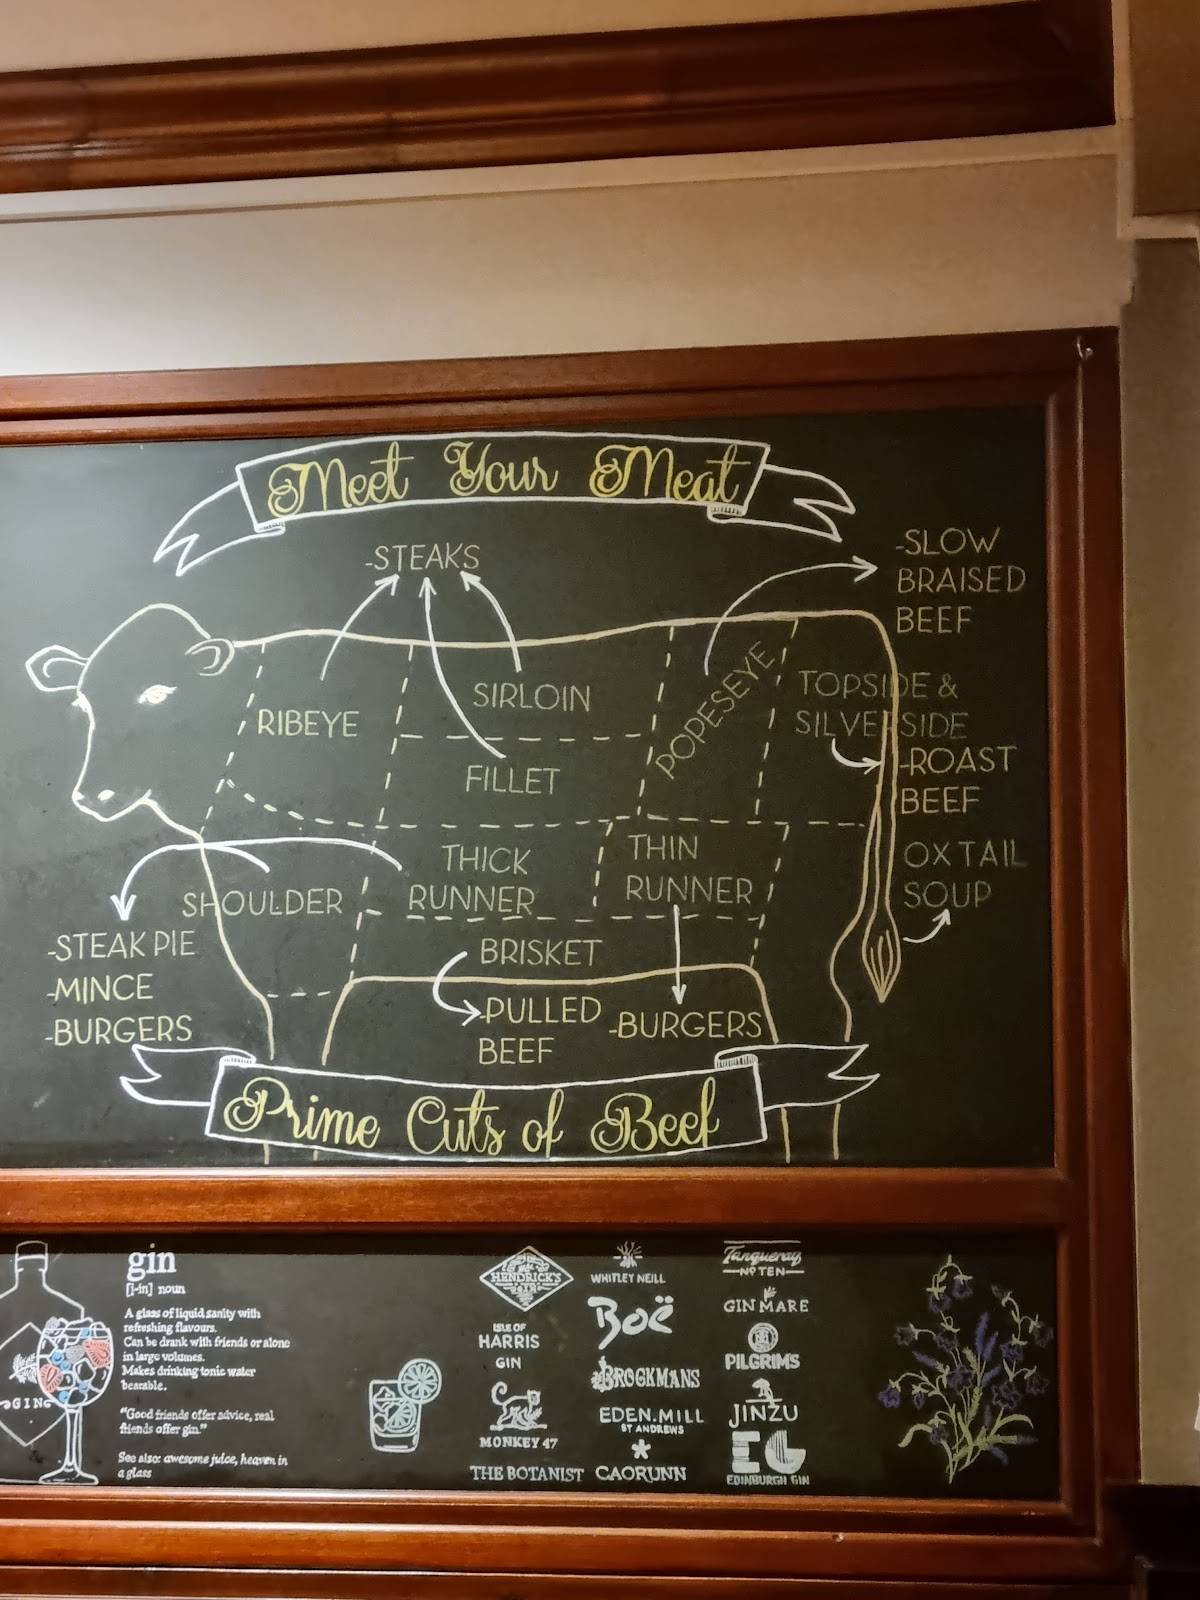 Meet Your Meat
-STEAKS
-SLOW
BRAISED
BEEF
RIBEYE
SIRLOIN
FILLET
POPESEYE
TOPSIDE &
SILVERSIDE
-ROAST
BEEF
OXTAIL
SOUP
THICK
RUNNER
THIN
RUNNER
SHOULDER
-STEAK PIE
-MINCE
-BURGERS
BRISKET
-PULLED
BEEF
-BURGERS
Prime Cuts of Beef
GIN
gin
[j-in] noun
A glass of liquid sanity with
refreshing flavours.
Can be drank with friends or alone
in large volumes.
Makes drinking tonic water
bearable.
"Good friends offer advice, real
friends offer gin."
See also: awesome juice, heaven in
a glass
HENDRICK'S
GIN
ISLE OF
HARRIS
GIN
MONKEY 47
THE BOTANIST
WHITLEY NEILL
Boë
BROCKMANS
EDEN.MILL
ST ANDREWS
CAORUNN
Tanqueray
Nº TEN
GIN MARE
PILGRIMS
JINZU
EG
EDINBURGH GIN